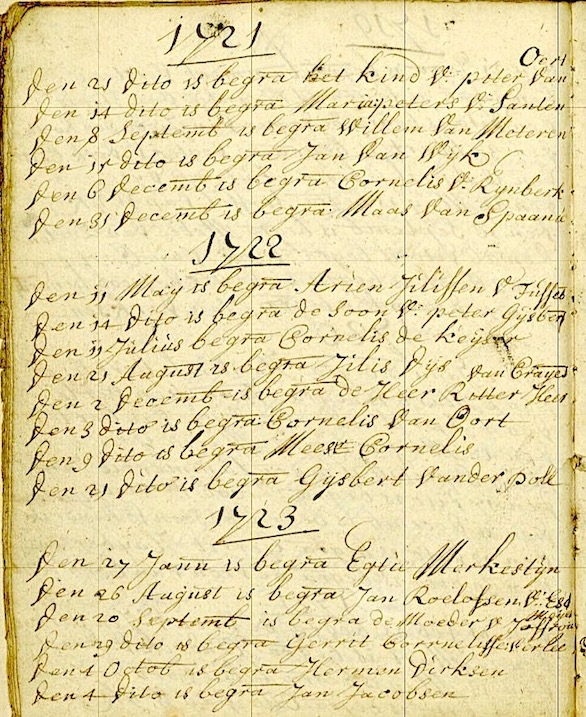 1721
Oort
Den 21 dito is begra het kind V. piter Van
Den 14 dito is begra Maria peters V. Santen
Den 8 Septemb is begra Willem Van Moteren
Den 15 dito is begra Jan Van Wyk
Den 6 Decemb is begra Cornelis V. Rynberk
Den 31 Decemb is begra Maas Van Spaanie
1722
Den 11 May is begra Arien Jilissen V.
Den 14 Dito is begra de Soon V. peter Gysbert
Den 11 Julius begra Cornelis de keyser
Den 21 August is begra Jilis Dys van
Den 2 Decemb is begra de Heer Ritter Heer
Den 3 dito is begra Cornelis Van Oort
Den 9 dito is begra Meest Cornelis
Den 21 dito is begra Gysbert Vander poll
1723
Den 27 Janu is begra Egtie Merkestyn
Den 26 August is begra Jan Roelofsen V.
Den 20 Septemb is begra de Moeder V.
Den 29 dito is begra Gerrit
Den 1 Octob is begra Hermen Dirksen
Den 4 dito is begra Jan Jacobsen